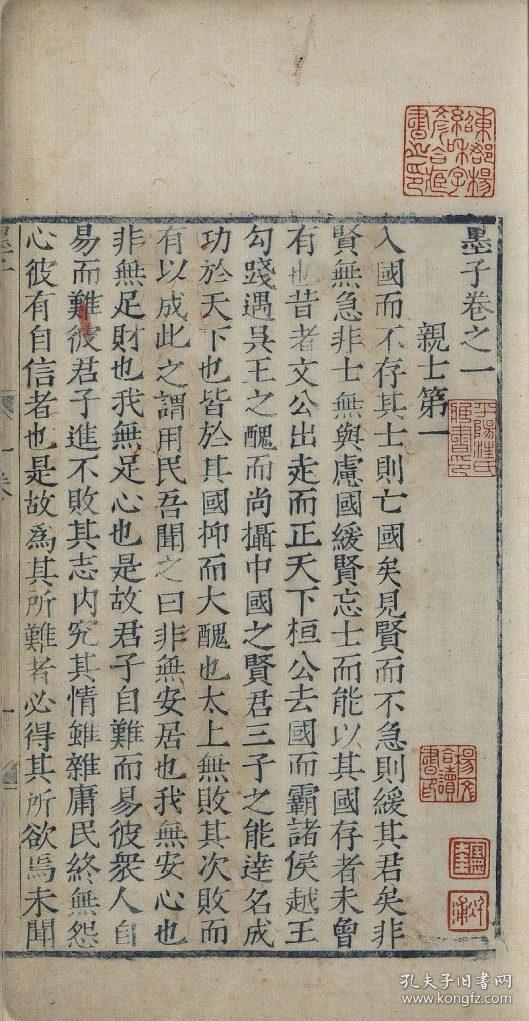 墨子卷之一
親士第一
入國而不存其士則亡國矣見賢而不急則緩其君矣非
賢無急非士無與慮國緩賢忘士而能以其國存者未曾
有也昔者文公出走而正天下桓公去國而霸諸侯越王
勾踐遇吳王之醜而尚攝中國之賢君三子之能達名成
功於天下也皆於其國抑而大醜也太上無敗其次敗而
有以成此之謂用民吾聞之曰非無安居也我無安心也
非無足財也我無足心也是故君子自難而易彼衆人自
易而難彼君子進不敗其志内究其情雖雜庸民終無怨
心彼有自信者也是故爲其所難者必得其所欲焉未聞
墨子
卷一
一
東郡楊
紹和字
彥合藏
書之印
平陽汪氏
藏書印
楊氏
讀
書印
孔夫子旧书网
www.kongfz.com